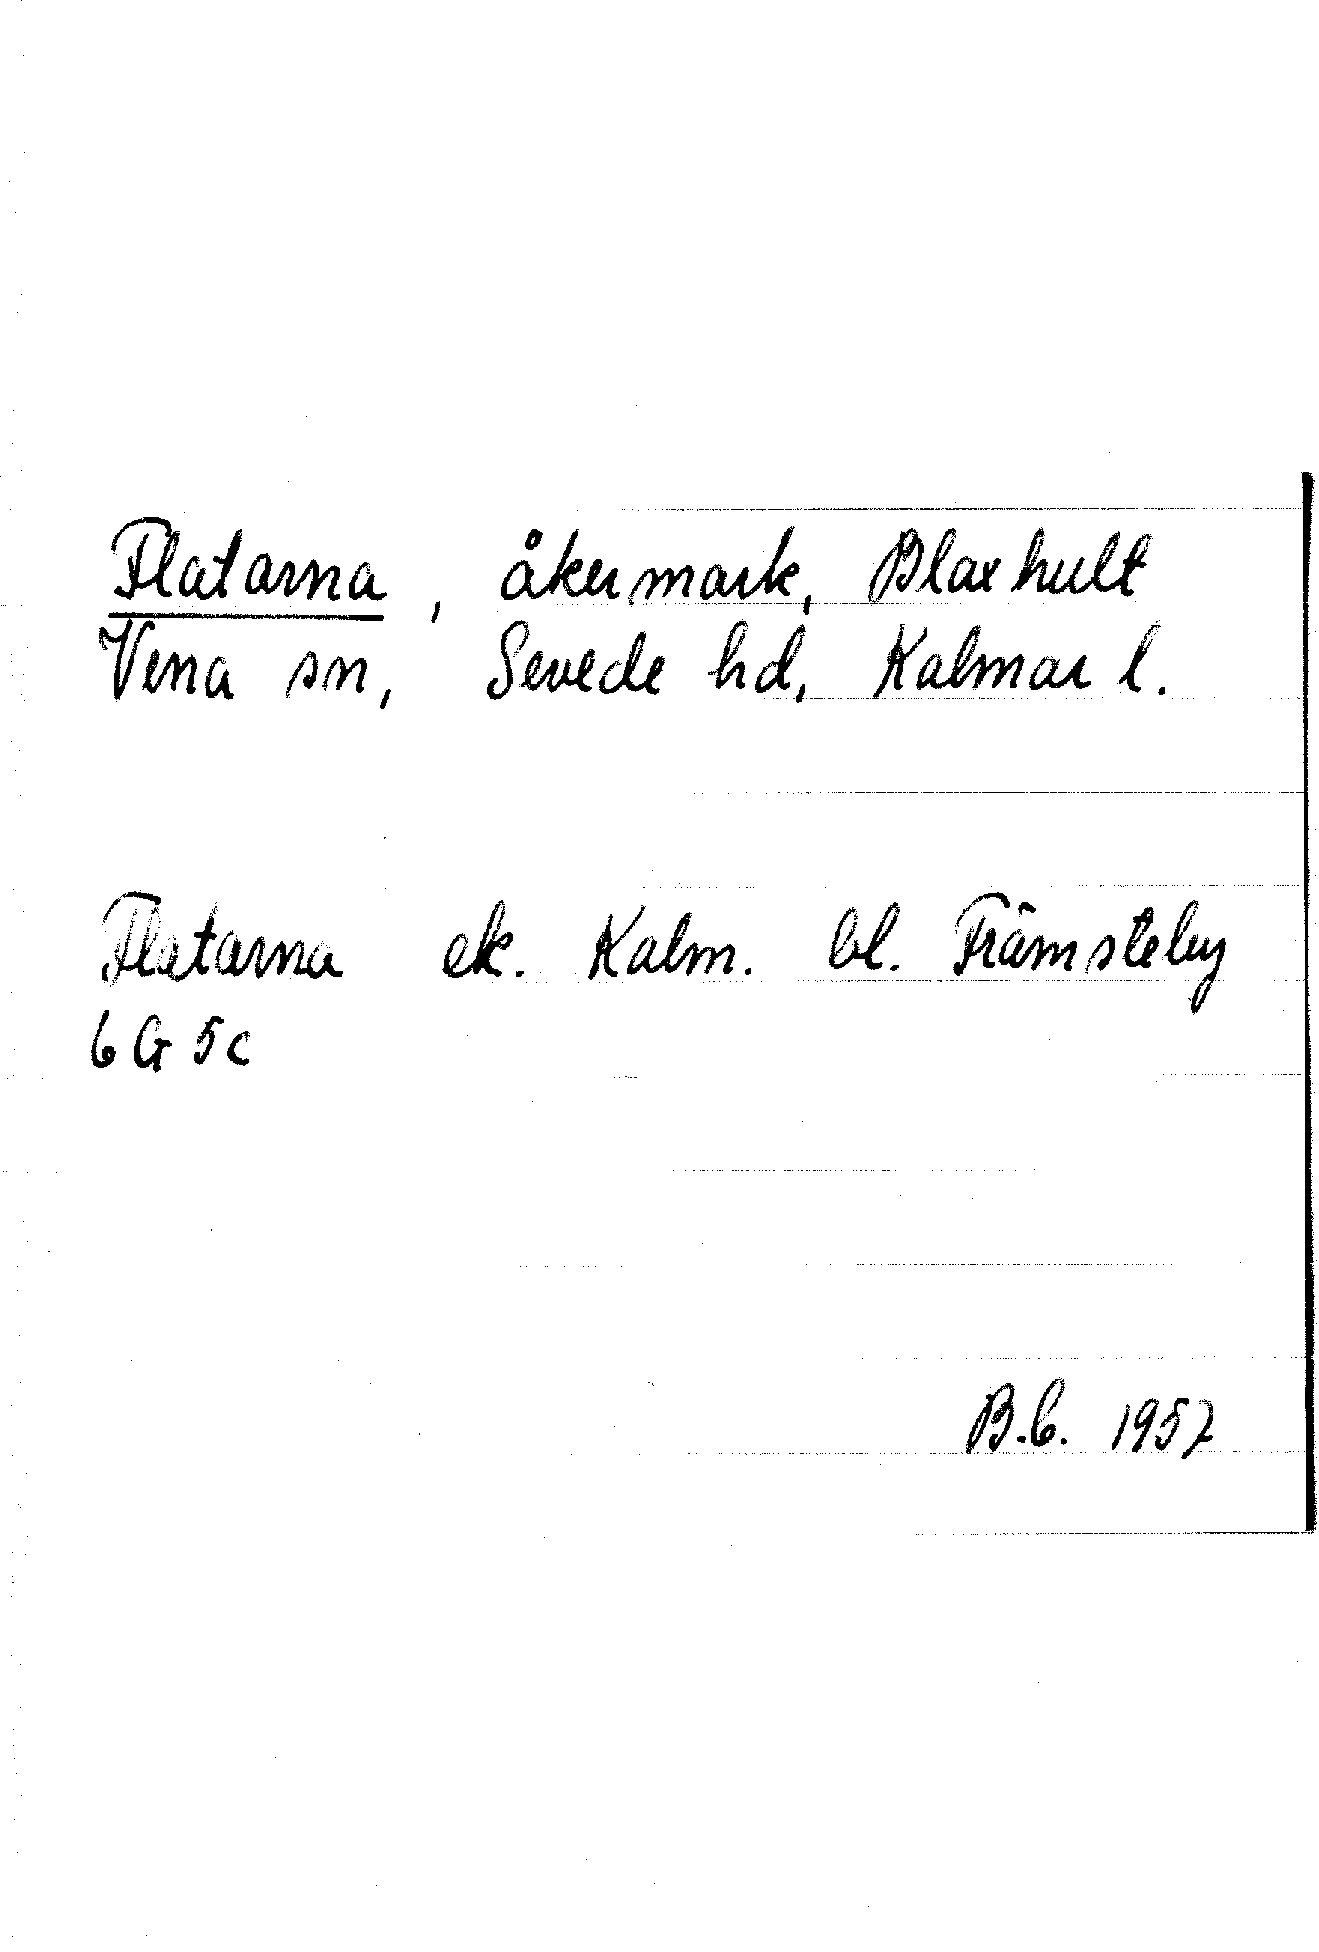 Flatarna, åkermark, Blaxhult
Vena sn, Sevede hd, Kalmar l.
Flatarna ek. Kalm. bl. Främsteby
6 G 5 c
B.b. 1957